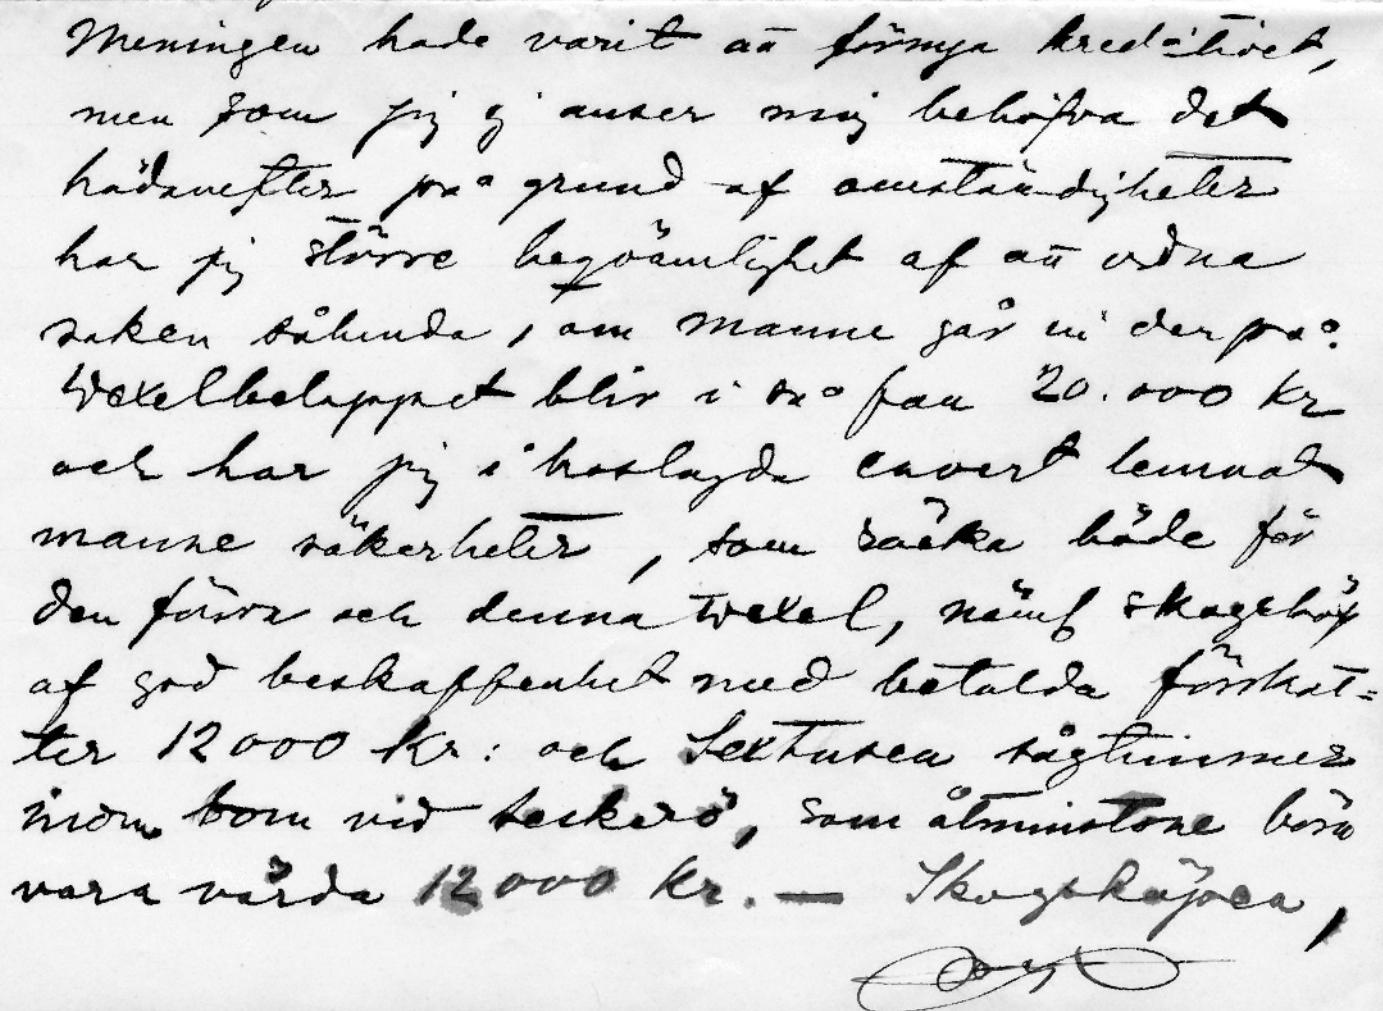 Meningen hade varit att förnya kreditivet,
men som jag ej anser mig behöfva det
hädanefter på grund af omständigheter
har jag större beqvämlighet af att ordna
saken sålunda, om Manne går in derpå.
Wexelbeloppet blir i så fall 20.000 Kr
och har jag i hoslagda couvert lemnat
Manne säkerheter, som räcka både för
den förra och denna wexel, näml skogsköp
af god beskaffenhet med betalda förskot=
ter 12000 Kr: och Sextusen sågtimmer
inom bom vid Seskarö, som åtminstone böra
vara värda 12000 Kr. — Skogsköpen,